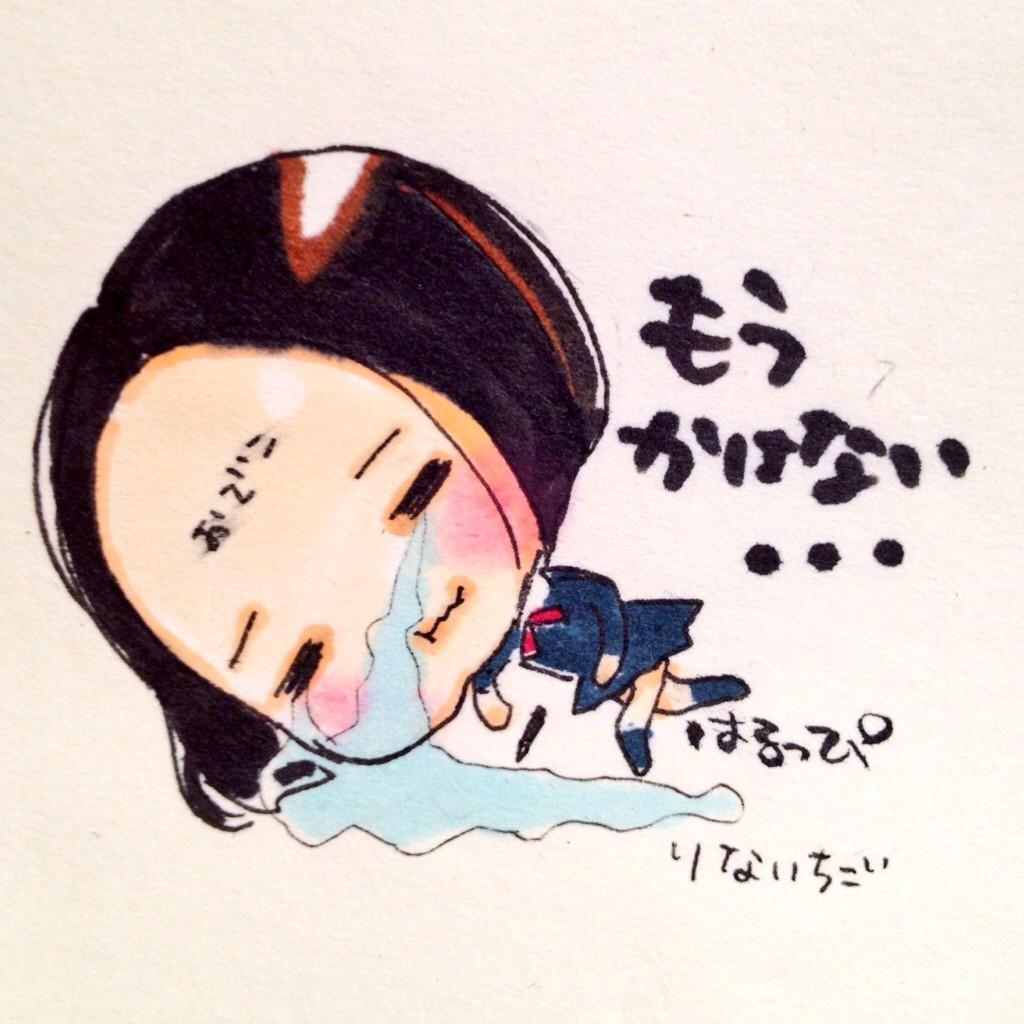 もう
かはない
•••
おでこ
はるっぴ
りないちごい